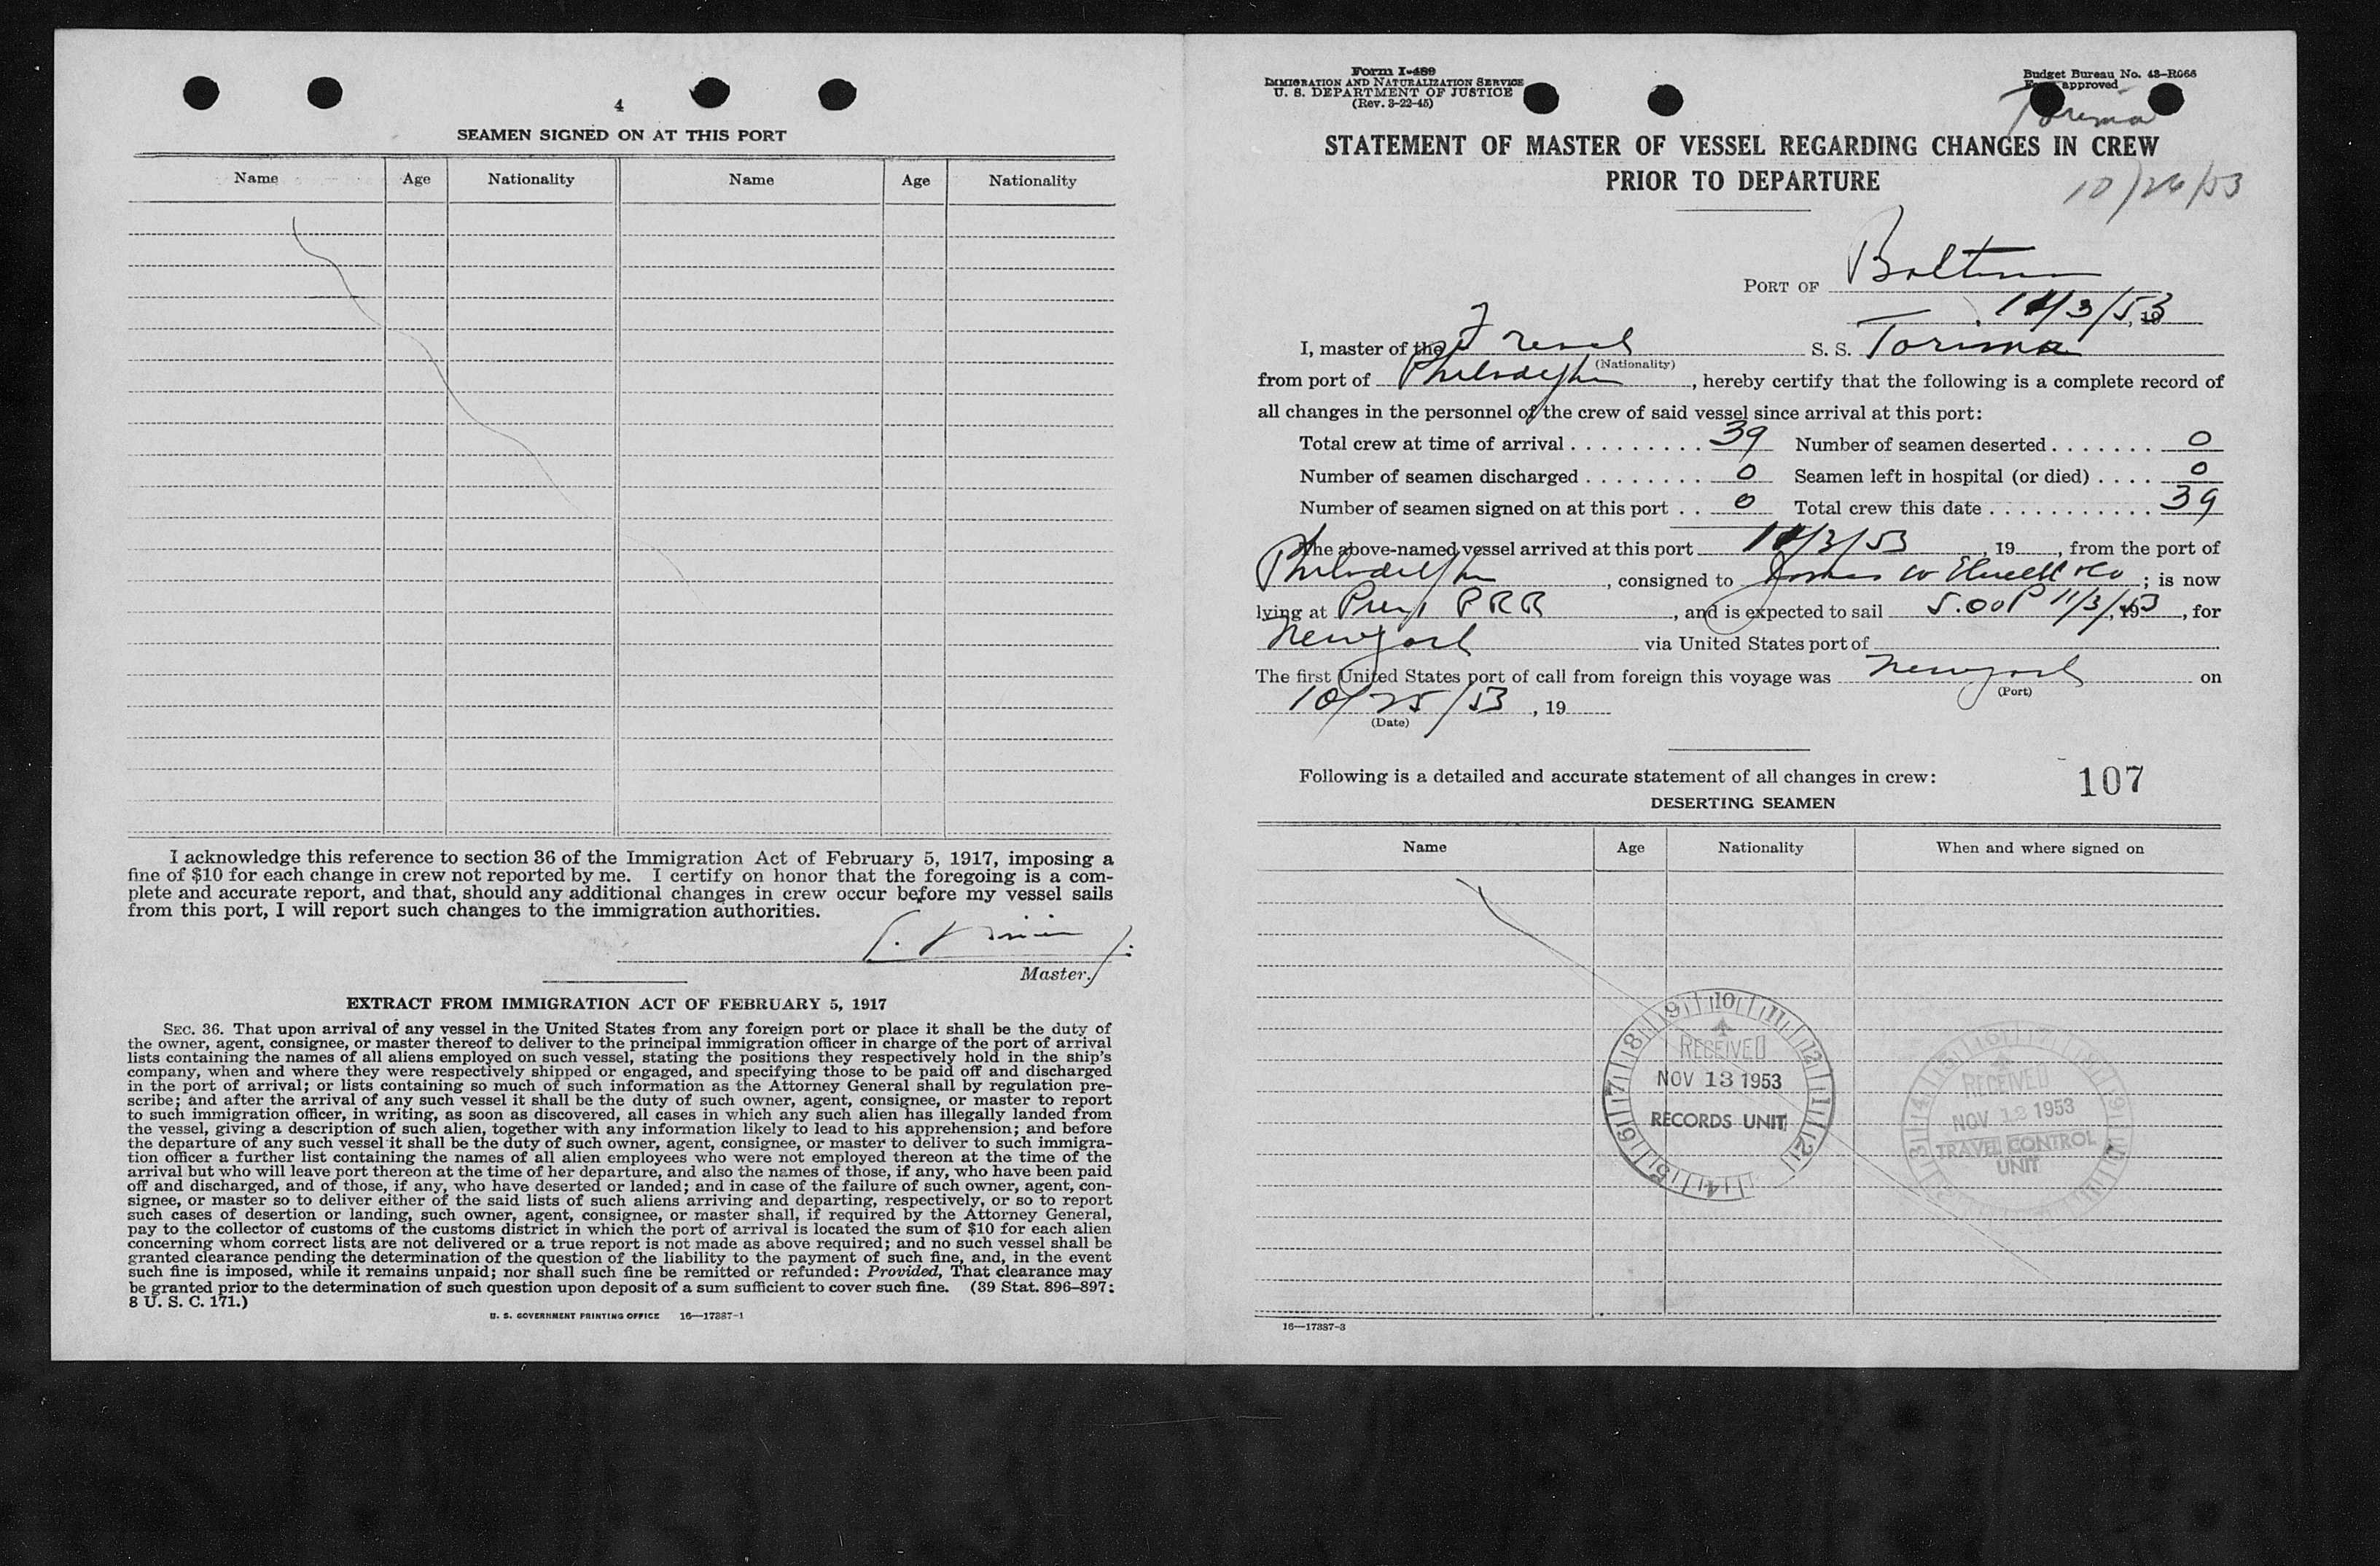 4
SEAMEN SIGNED ON AT THIS PORT
Name Age Nationality Name Age Nationality
I acknowledge this reference to section 36 of the Immigration Act of February 5, 1917, imposing a
fine of $10 for each change in crew not reported by me. I certify on honor that the foregoing is a com-
plete and accurate report, and that, should any additional changes in crew occur before my vessel sails
from this port, I will report such changes to the immigration authorities.
Master.
EXTRACT FROM IMMIGRATION ACT OF FEBRUARY 5, 1917
SEC. 36. That upon arrival of any vessel in the United States from any foreign port or place it shall be the duty of
the owner, agent, consignee, or master thereof to deliver to the principal immigration officer in charge of the port of arrival
lists containing the names of all aliens employed on such vessel, stating the positions they respectively hold in the ship's
company, when and where they were respectively shipped or engaged, and specifying those to be paid off and discharged
in the port of arrival; or lists containing so much of such information as the Attorney General shall by regulation pre-
scribe; and after the arrival of any such vessel it shall be the duty of such owner, agent, consignee, or master to report
to such immigration officer, in writing, as soon as discovered, all cases in which any such alien has illegally landed from
the vessel, giving a description of such alien, together with any information likely to lead to his apprehension; and before
the departure of any such vessel it shall be the duty of such owner, agent, consignee, or master to deliver to such immigra-
tion officer a further list containing the names of all alien employees who were not employed thereon at the time of the
arrival but who will leave port thereon at the time of her departure, and also the names of those, if any, who have been paid
off and discharged, and of those, if any, who have deserted or landed; and in case of the failure of such owner, agent, con-
signee, or master so to deliver either of the said lists of such aliens arriving and departing, respectively, or so to report
such cases of desertion or landing, such owner, agent, consignee, or master shall, if required by the Attorney General,
pay to the collector of customs of the customs district in which the port of arrival is located the sum of $10 for each alien
concerning whom correct lists are not delivered or a true report is not made as above required; and no such vessel shall be
granted clearance pending the determination of the question of the liability to the payment of such fine, and, in the event
such fine is imposed, while it remains unpaid; nor shall such fine be remitted or refunded: Provided, That clearance may
be granted prior to the determination of such question upon deposit of a sum sufficient to cover such fine. (39 Stat. 896–897;
8 U. S. C. 171.)
U. S. GOVERNMENT PRINTING OFFICE 16—17387-1
Form I-489
IMMIGRATION AND NATURALIZATION SERVICE
U. S. DEPARTMENT OF JUSTICE
(Rev. 3-22-45)
Budget Bureau No. 43-R066
approved
Torima
STATEMENT OF MASTER OF VESSEL REGARDING CHANGES IN CREW
PRIOR TO DEPARTURE
10/26/53
PORT OF Baltimore
11/3/53, 19
I, master of the French S. S. Torima
(Nationality)
from port of Philadelphia, hereby certify that the following is a complete record of
all changes in the personnel of the crew of said vessel since arrival at this port:
Total crew at time of arrival . . . . . . . . . 39 Number of seamen deserted . . . . . . . 0
Number of seamen discharged . . . . . . . . 0 Seamen left in hospital (or died) . . . . 0
Number of seamen signed on at this port . . 0 Total crew this date . . . . . . . . . . . 39
The above-named vessel arrived at this port 11/3/53, 19, from the port of
Philadelphia, consigned to James W Elwell & Co; is now
lying at Pier 1 PRR, and is expected to sail 5.00P 11/3/53, 19, for
New York via United States port of
The first United States port of call from foreign this voyage was New York on
(Port)
10/25/53, 19
(Date)
Following is a detailed and accurate statement of all changes in crew: 107
DESERTING SEAMEN
Name Age Nationality When and where signed on
RECEIVED
NOV 13 1953
RECORDS UNIT
RECEIVED
NOV 12 1953
TRAVEL CONTROL
UNIT
16—17387-3